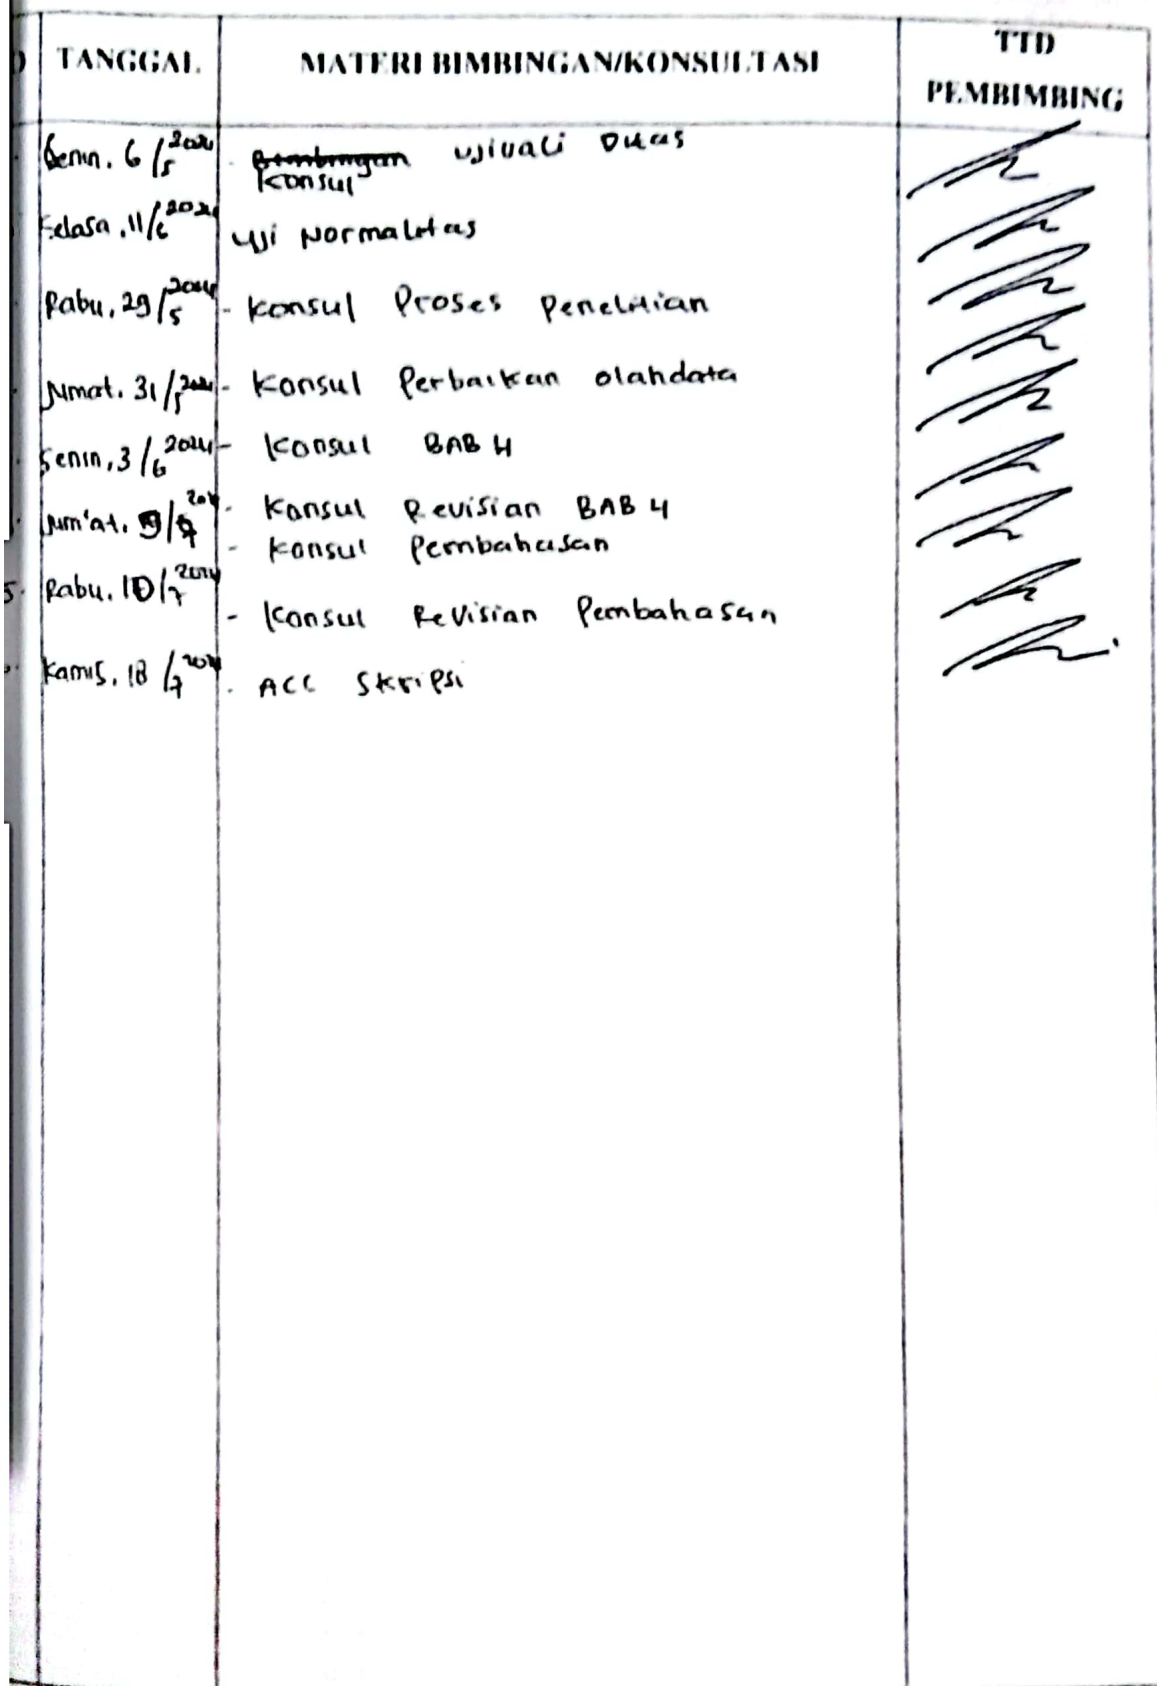 TANGGAL MATERI BIMBINGAN/KONSULTASI TTD
PEMBIMBING
Senin. 6/5 2024 - Bimbingan ujivali Dutas
Konsul
Selasa, 11/6 2024 Uji Normalitas
Rabu, 29/5 2024 - Konsul Proses Penelitian
Jumat. 31/5 2024 - Konsul Perbaikan olahdata
Senin, 3/6 2024 - Konsul BAB 4
Jum'at. - Konsul Revisian BAB 4
- Konsul Pembahasan
5. Rabu. 10/7 2024
- Konsul Revisian Pembahasan
Kamis. 18/7 2024 - ACC Skripsi